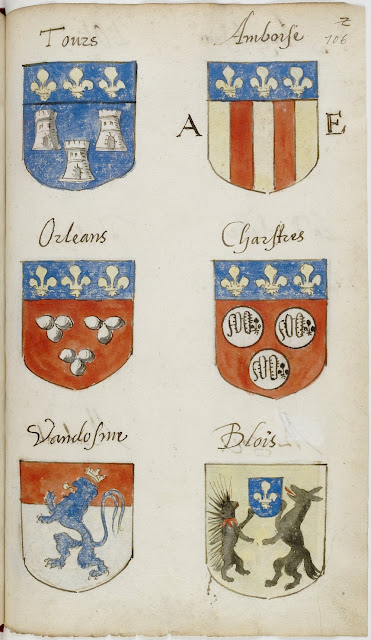 2
106
Tours
Amboise
A E
Orleans
Charstres
Vandosme
Blois